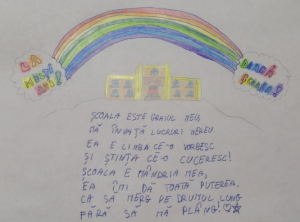 LA
MULȚI
ANI!
DRAGĂ
ȘCOALĂ!
ȘCOALA ESTE GRAIUL MEU
MĂ ÎNVAȚĂ LUCRURI MEREU.
EA E LIMBA CE-O VORBESC
ȘI ȘTIINȚA CE-O CUCERESC!
ȘCOALA E MÂNDRIA MEA,
EA ÎMI DĂ TOATĂ PUTEREA,
CA SĂ MERG PE DRUMUL LUNG
FĂRĂ SĂ MĂ PLÂNG!